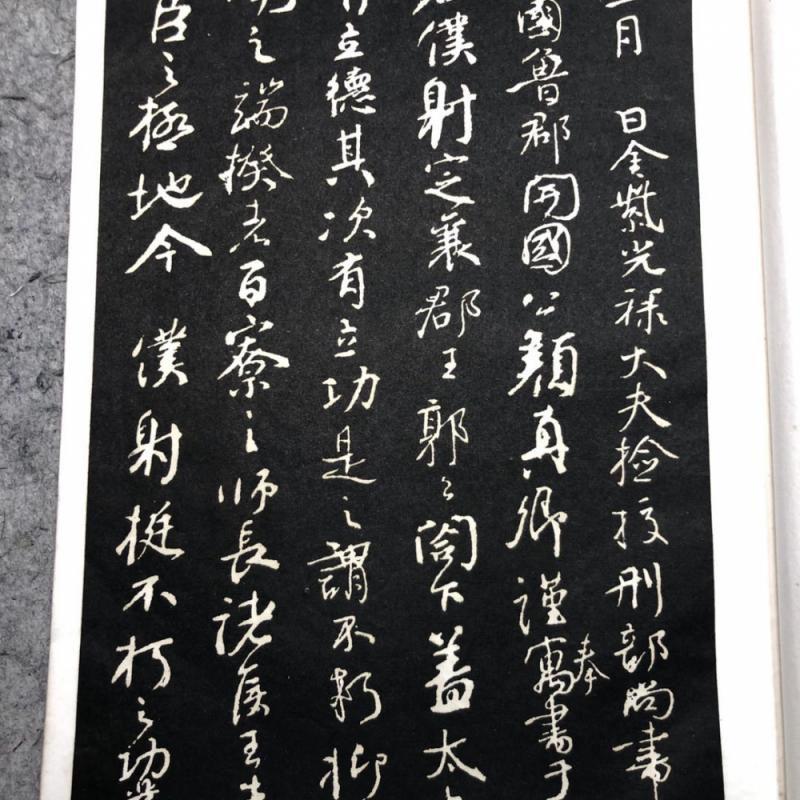 月 日金紫光祿大夫檢校刑部尚書
國魯郡開國公顏真卿謹奉寓書于
僕射定襄郡王郭公閤下蓋太
有立德其次有立功是之謂不朽抑
之端揆者百寮之師長諸侯王
臣之極地今 僕射挺不朽之功